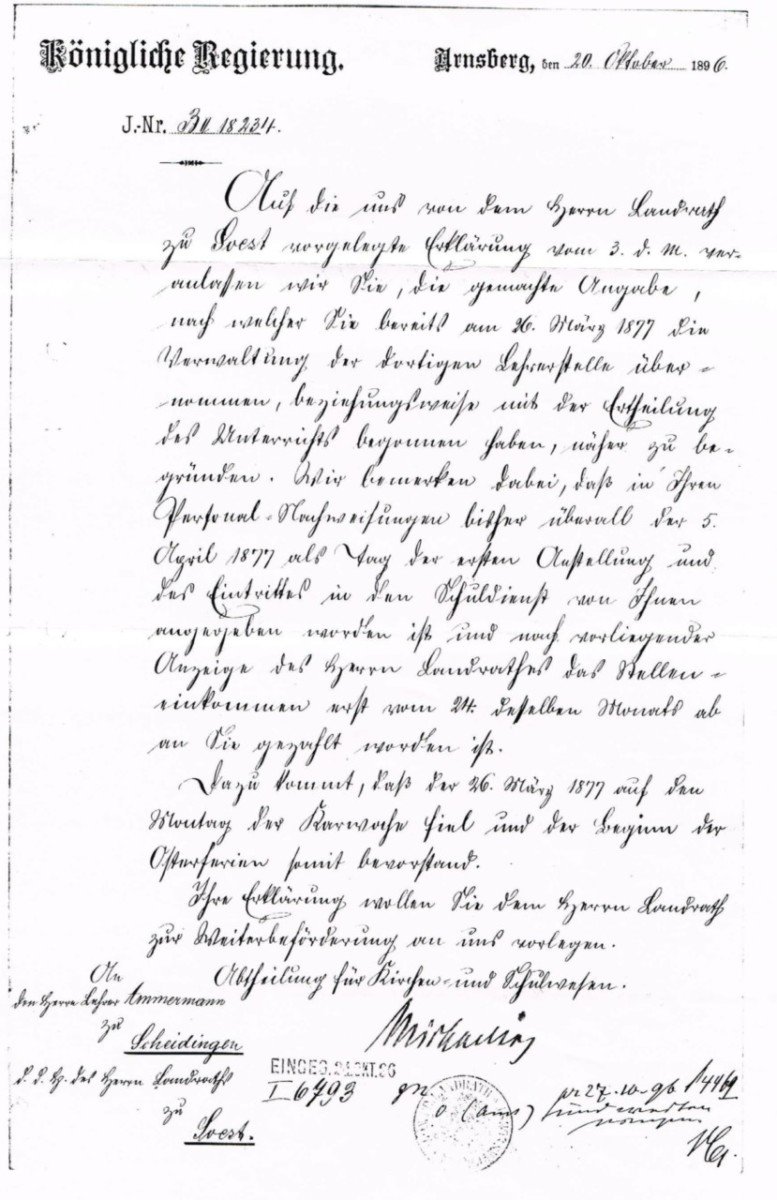 Königliche Regierung.
Arnsberg, den 20. Oktober 1896.
J.-Nr. B II 18234.
Auf die uns von dem Herrn Landrath
zu Soest vorgelegte Erklärung vom 3. d. M. ver-
anlassen wir Sie, die gemachte Angabe,
nach welcher Sie bereits am 26. März 1877 die
Verwaltung der dortigen Lehrerstelle über-
nommen, beziehungsweise mit der Ertheilung
des Unterrichts begonnen haben, näher zu be-
gründen. Wir bemerken dabei, daß in Ihren
Personal-Nachweisungen bisher überall der 5.
April 1877 als Tag der ersten Anstellung und
des Eintrittes in den Schuldienst von Ihnen
angegeben worden ist und nach vorliegender
Anzeige des Herrn Landrathes das Stellen-
einkommen erst vom 24. desselben Monats ab
an Sie gezahlt worden ist.
Dazu kommt, daß der 26. März 1877 auf den
Montag der Karwoche fiel und der Beginn der
Osterferien somit bevorstand.
Ihre Erklärung wollen Sie dem Herrn Landrath
zur Weiterbeförderung an uns vorlegen.
Abtheilung für Kirchen- und Schulwesen.
An
den Herrn Lehrer Ammermann
zu
Scheidingen
d. d. H. des Herrn Landraths
zu
Soest.
EINGEG. OKT. 96
I 6793
LANDRATH
pr 27.10.96